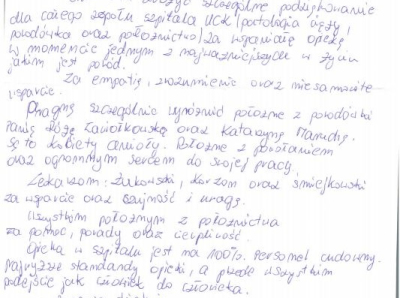 złożyć szczególne podziękowanie
dla całego zespołu szpitala UCK (patologia ciąży,
porodówka oraz położnictwo) za wspaniałą opiekę
w momencie jednym z najważniejszych w życiu
jakim jest poród.
Za empatię, zrozumienie oraz niesamowite
wsparcie.
Pragnę szczególnie wyróżnić położne z porodówki
Panią Różę oraz Katarzynę
Są to kobiety anioły. Położne z powołaniem
oraz ogromnym sercem do swojej pracy.
Lekarzom: Żukowski, Korzon oraz Śmiejkowski
za wsparcie oraz czujność i uwagę.
Wszystkim położnym z położnictwa
za pomoc, porady oraz cierpliwość.
Opieka w szpitalu jest na 100%. Personel cudowny.
Najwyższe standardy opieki, a przede wszystkim
podejście jak człowiek do człowieka.